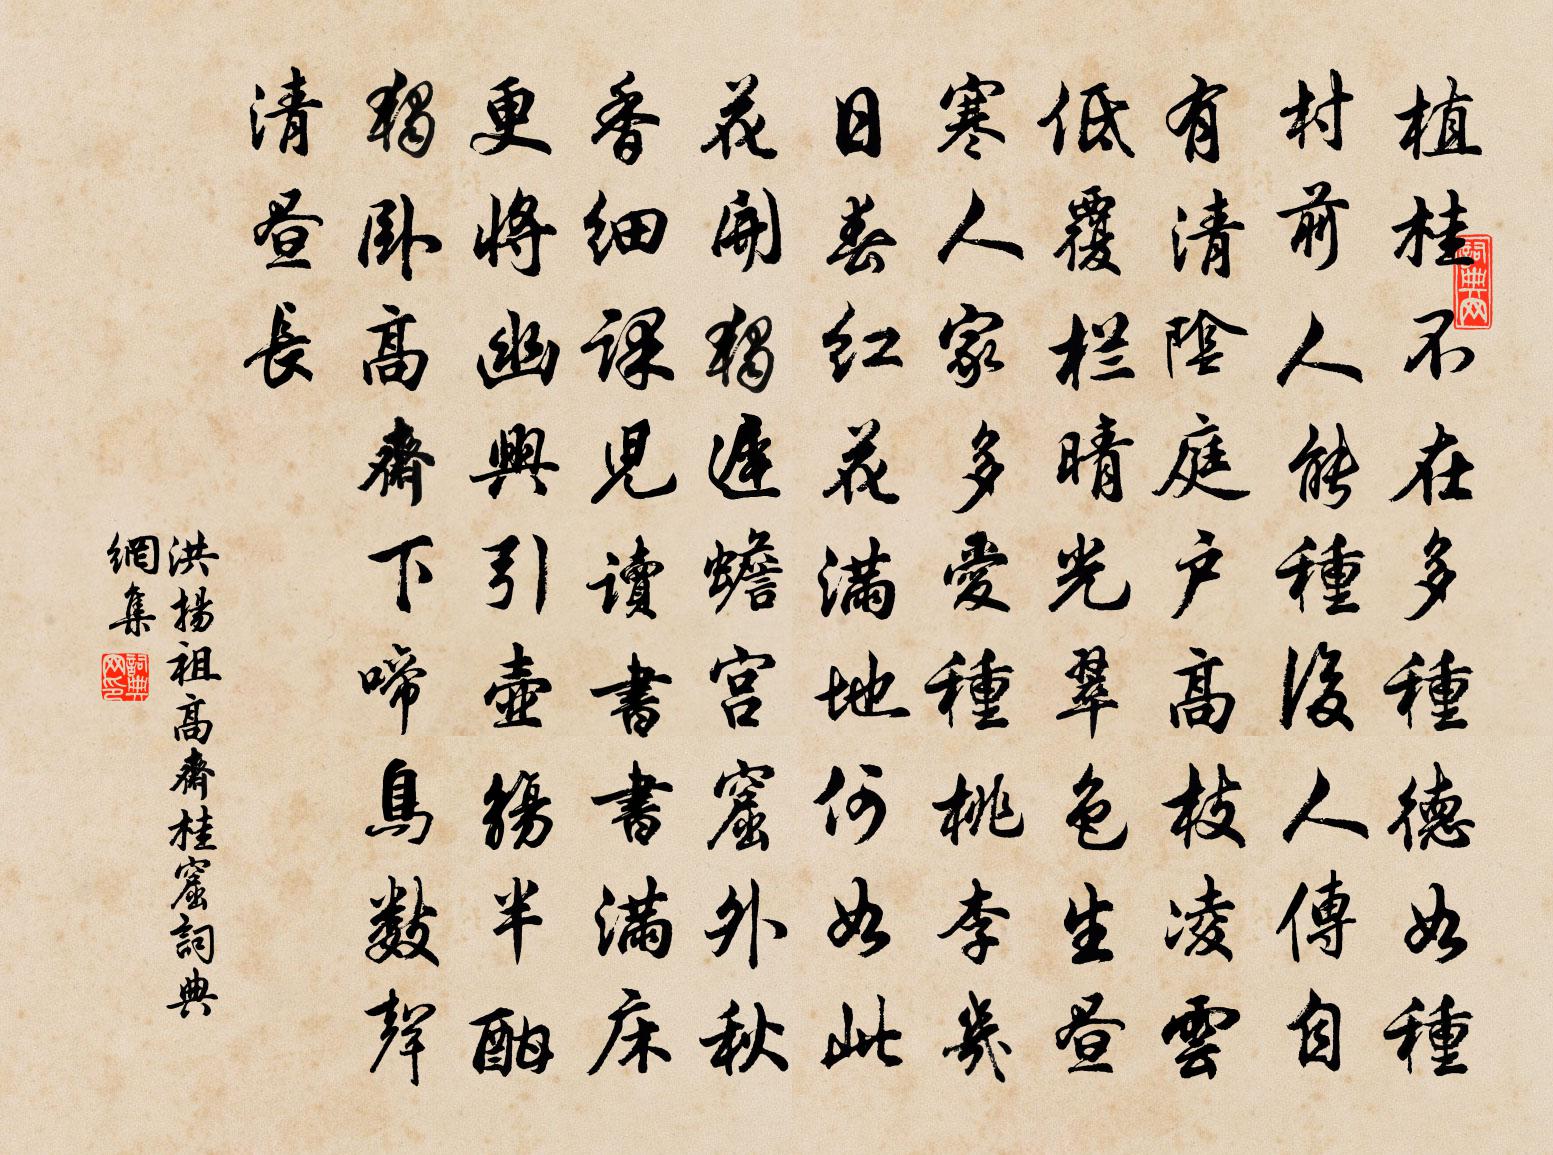 植桂不在多種德如種
村前人能種後人傳自
有清陰庭户高枝凌雲
低覆栏晴光翠色生昼
寒人家多愛種桃李幾
日春红花滿地何如此
花開獨遲蟾宫窟外秋
香细課児讀書書滿床
更將幽興引壺觴半酣
獨卧高齋下啼鳥數聲
清昼長
洪揚祖高齋桂窟詞典
網集
詞典网
詞典网印